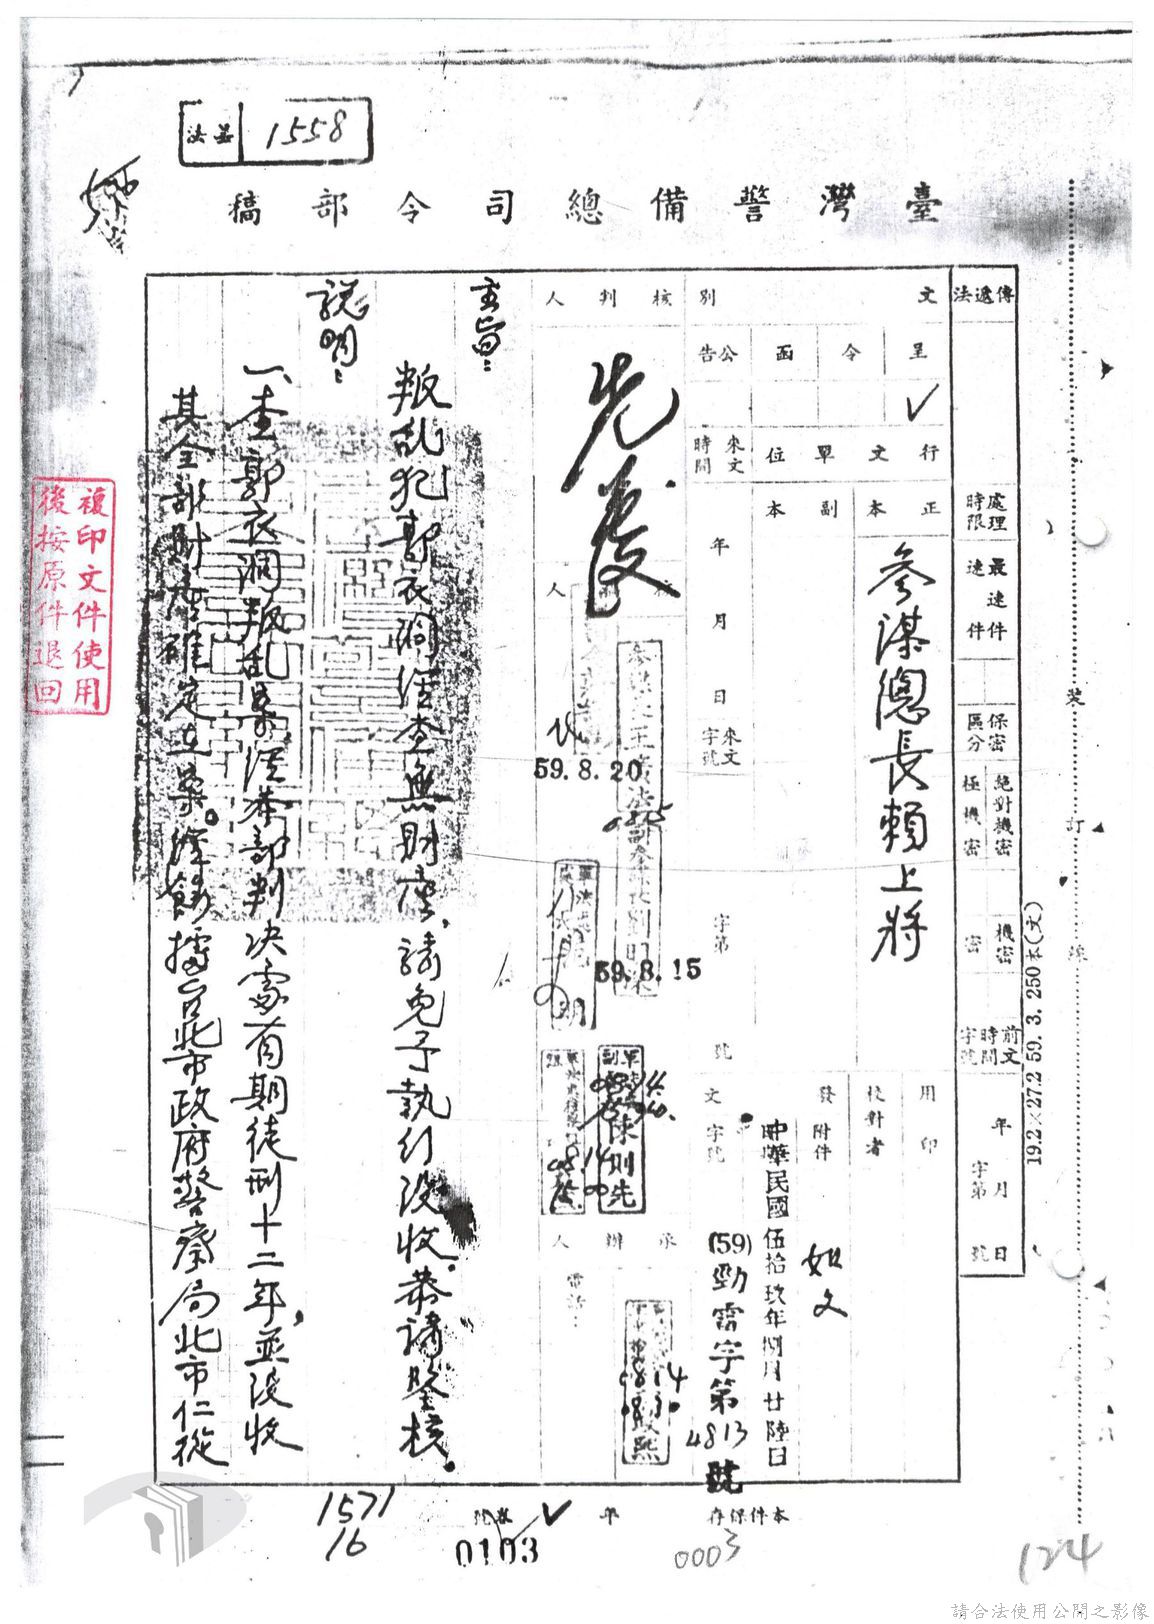 法盖
1558
臺灣警備總司令部稿
傳遞法
處理時限
最速件
速件
保密區分
絕對機密
極機密
機密
密
前文時間字號
年月日
字第號
文別
呈
令
函
公告
✓
行文單位
正本
副本
參謀總長賴上將
來文時間
年月日
來文字號
字第
號
用印
校對者
發文
附件
如文
中華民國伍拾玖年捌月廿陸日
字號
(59)勁需字第4813號
核判人
先發
59.8.20
59.8.15
陳則先
承辦人
電話:
主旨:
叛乱犯郭衣洞經查無財產,請免予執行沒收。恭請鑒核。
說明:
一、查郭衣洞叛乱案經本部判決處有期徒刑十二年,並沒收
其全部財產確定在案。經飭據台北市政府警察局北市仁從
192×27.2 59.3.250本(文)
裝
訂
線
複印文件使用
後按原件退回
1571
16
卷號
年
本件保存
0103
0003
124
請合法使用公開之影像